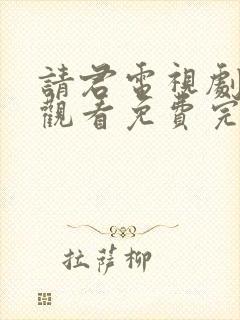 請君電視劇
觀看免費完
拉薩柳